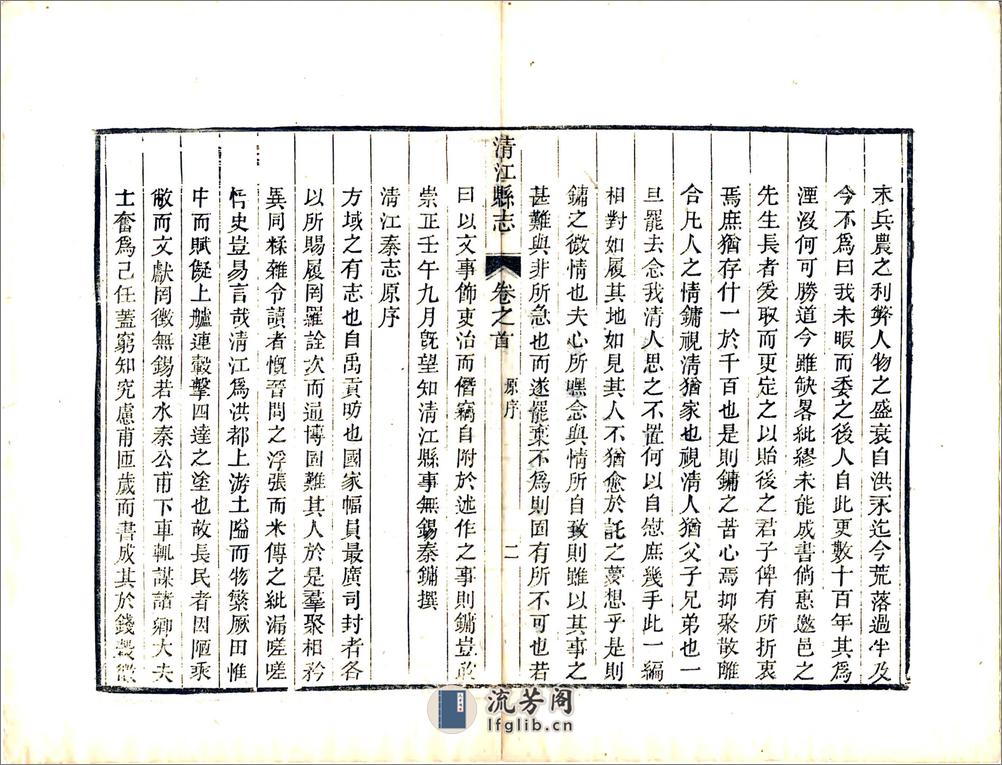 末兵農之利弊人物之盛衰自洪永迄今荒落過半及
今不爲曰我未暇而委之後人自此更數十百年其爲
湮沒何可勝道今雖缺畧紕繆未能成書倘惠邀邑之
先生長者爰取而更定之以貽後之君子俾有所折衷
焉庶猶存什一於千百也是則鏞之苦心焉抑聚散離
合凡人之情鏞視清猶家也視清人猶父子兄弟也一
旦罷去念我清人思之不置何以自慰庶幾手此一編
相對如履其地如見其人不猶愈於託之夢想乎是則
鏞之微情也夫心所嘿念與情所自致則雖以其事之
甚難與非所急也而遂罷棄不爲則固有所不可也若
清江縣志
卷之首
原序
二
曰以文事飾吏治而僭竊自附於述作之事則鏞豈敢
崇正壬午九月旣望知清江縣事無錫秦鏞撰
清江秦志原序
方域之有志也自禹貢昉也國家幅員最廣司封者各
以所賜履罔羅詮次而逼博固難其人於是羣聚相矜
異同糅雜令讀者慨晉問之浮張而米傳之紕漏嗟嗟
史豈易言哉清江爲洪都上游土隘而物繁厥田惟
中而賦儗上艫連轂擊四達之塗也故長民者因陋乘
敝而文獻罔徵無錫若水秦公甫下車輒謀諸卿大夫
士奮爲己任蓋窮知究慮甫匝歲而書成其於錢穀
流芳阁
lfglib.cn